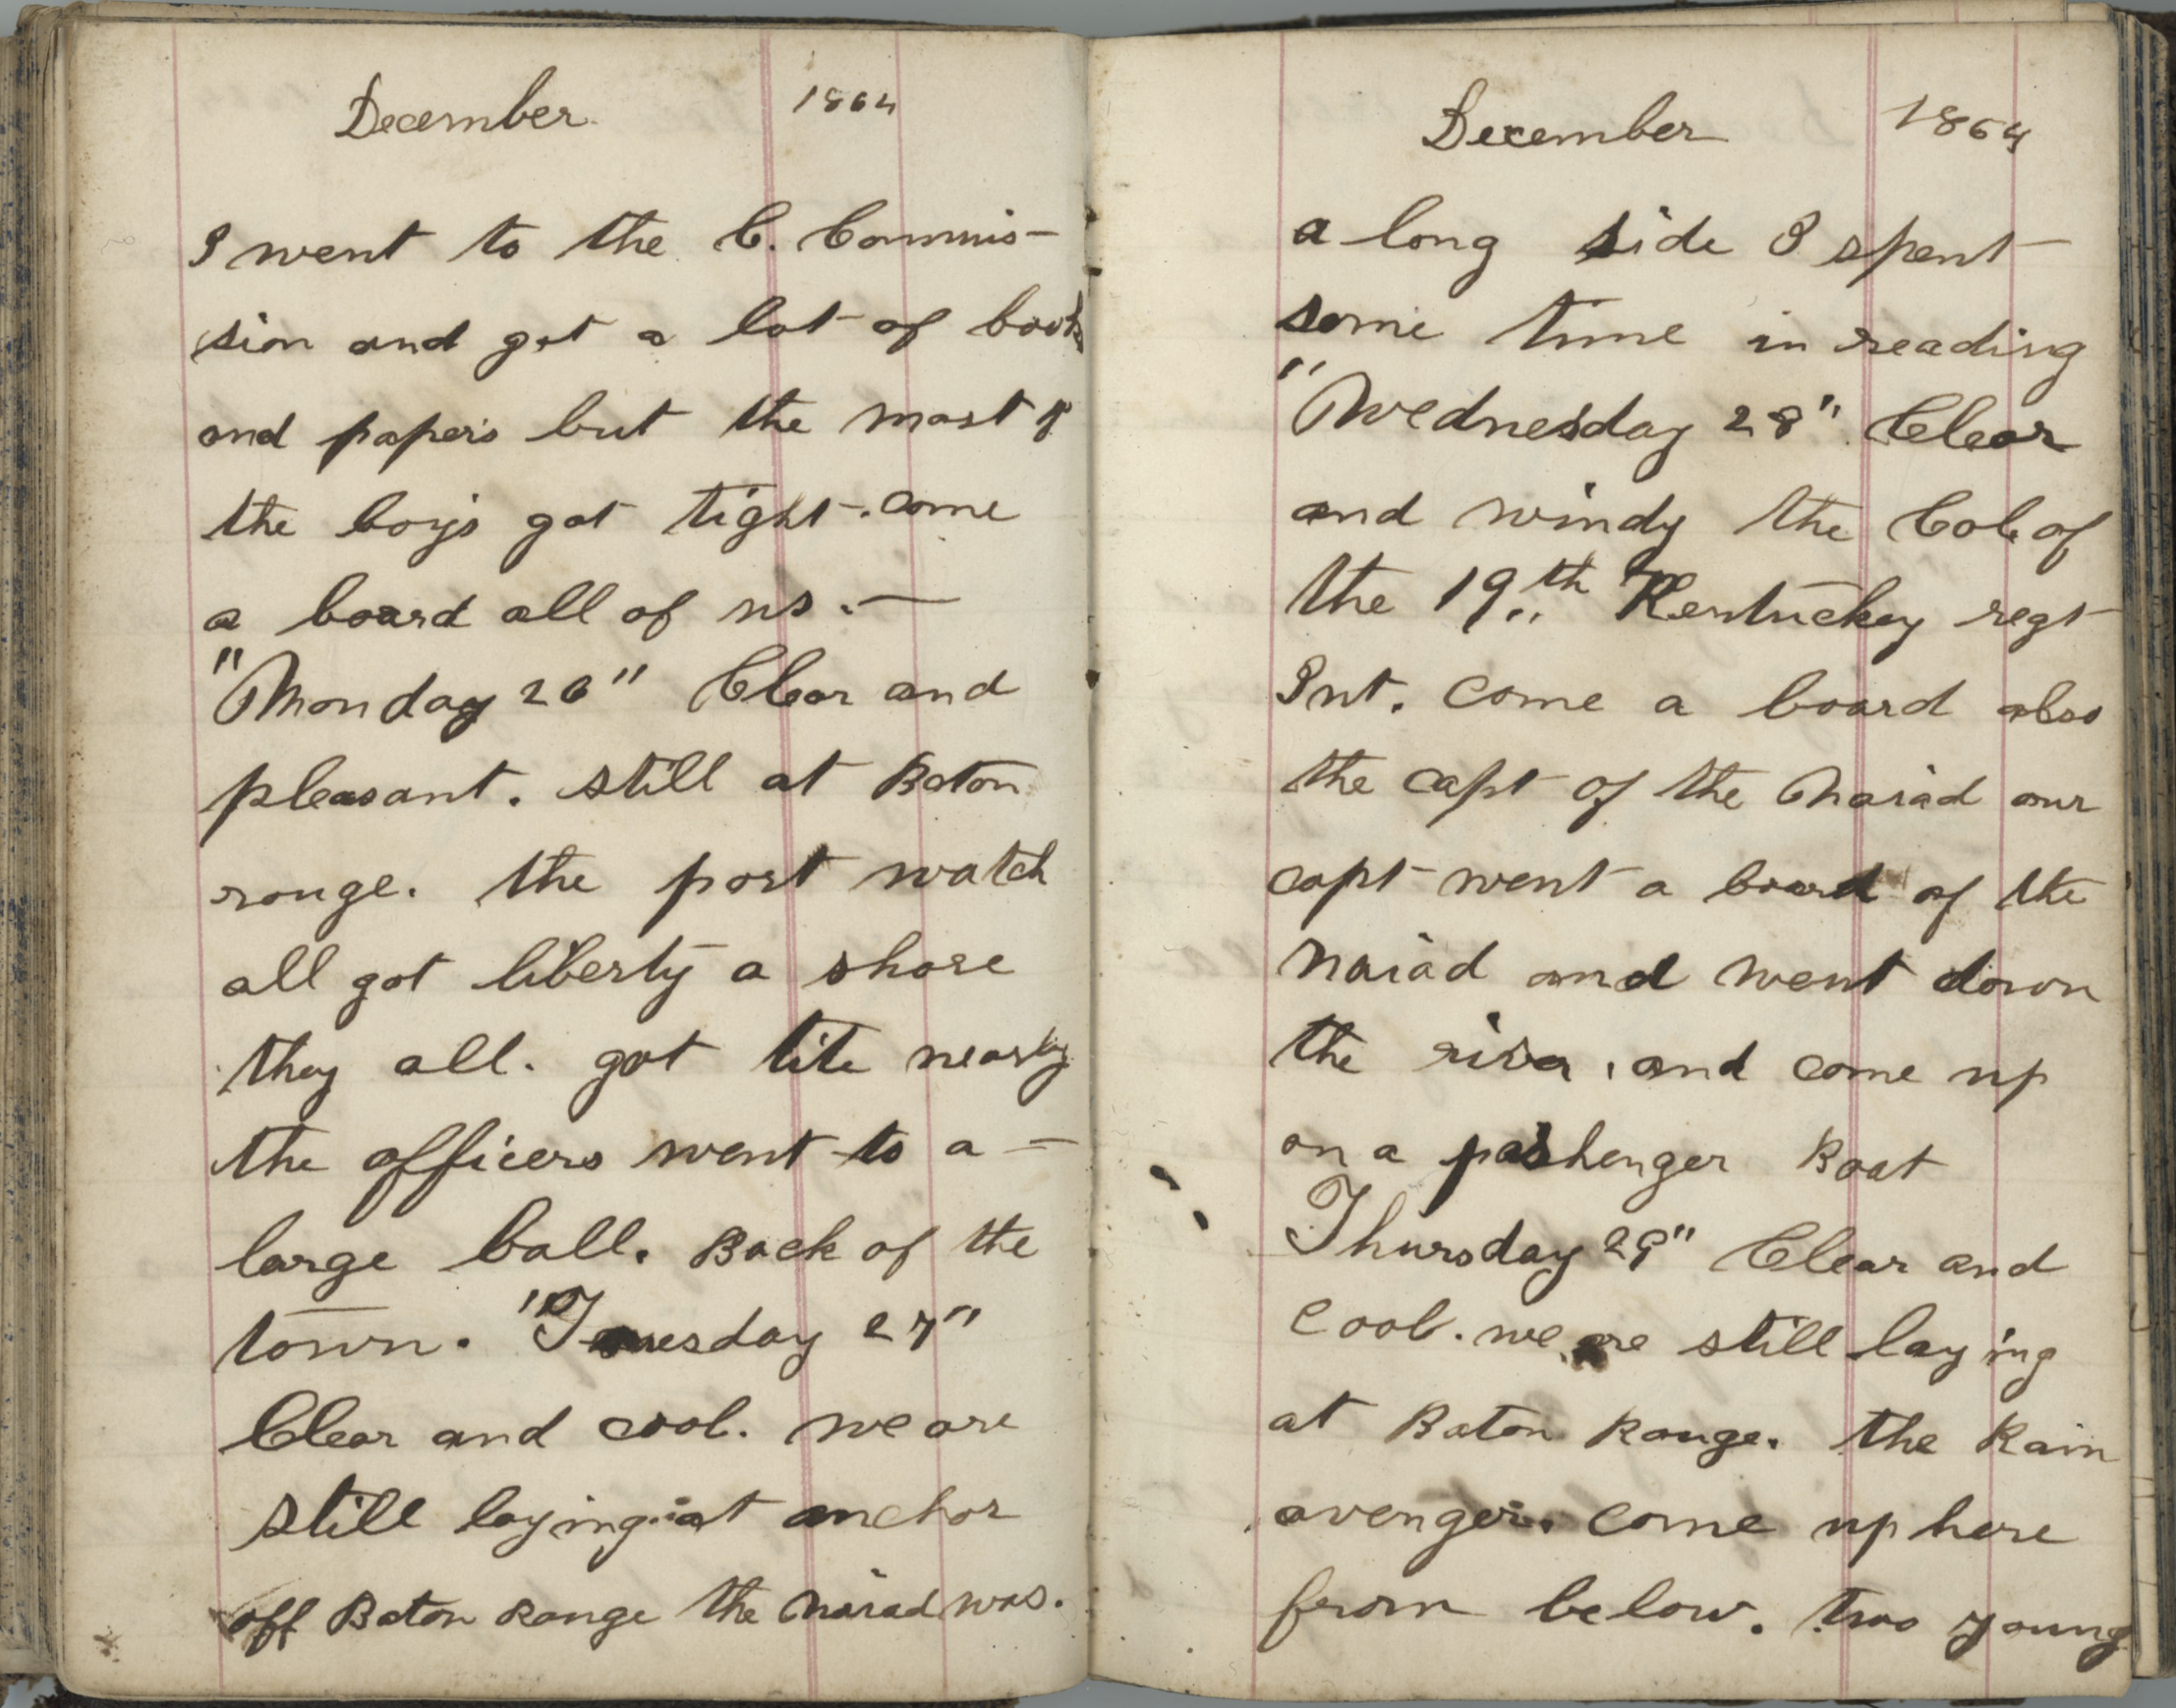 December 1864
I went to the C. Commis-
sion and got a lot of books
and papers but the most of
the boys got tight. come
a board all of us. —
"Monday 26" Clear and
pleasant. still at Baton
rouge. the port watch
all got liberty a shore
they all. got tite nearly
the officers went to a —
large ball. Back of the
town. "Tuesday 27"
Clear and cool. we are
still laying at anchor
off Baton Rouge the Naiad was.
December 1864
a long side I spent
some time in reading
"Wednesday 28" Clear
and windy the Col. of
the 19th Kentucky regt
Int. come a board also
the capt of the Naiad our
capt went a board of the
Naiad and went down
the river, and come up
on a pashenger Boat
Thursday 29" Clear and
Cool. we are still laying
at Baton Rouge. the Ram
avenger. come up here
from below. two young